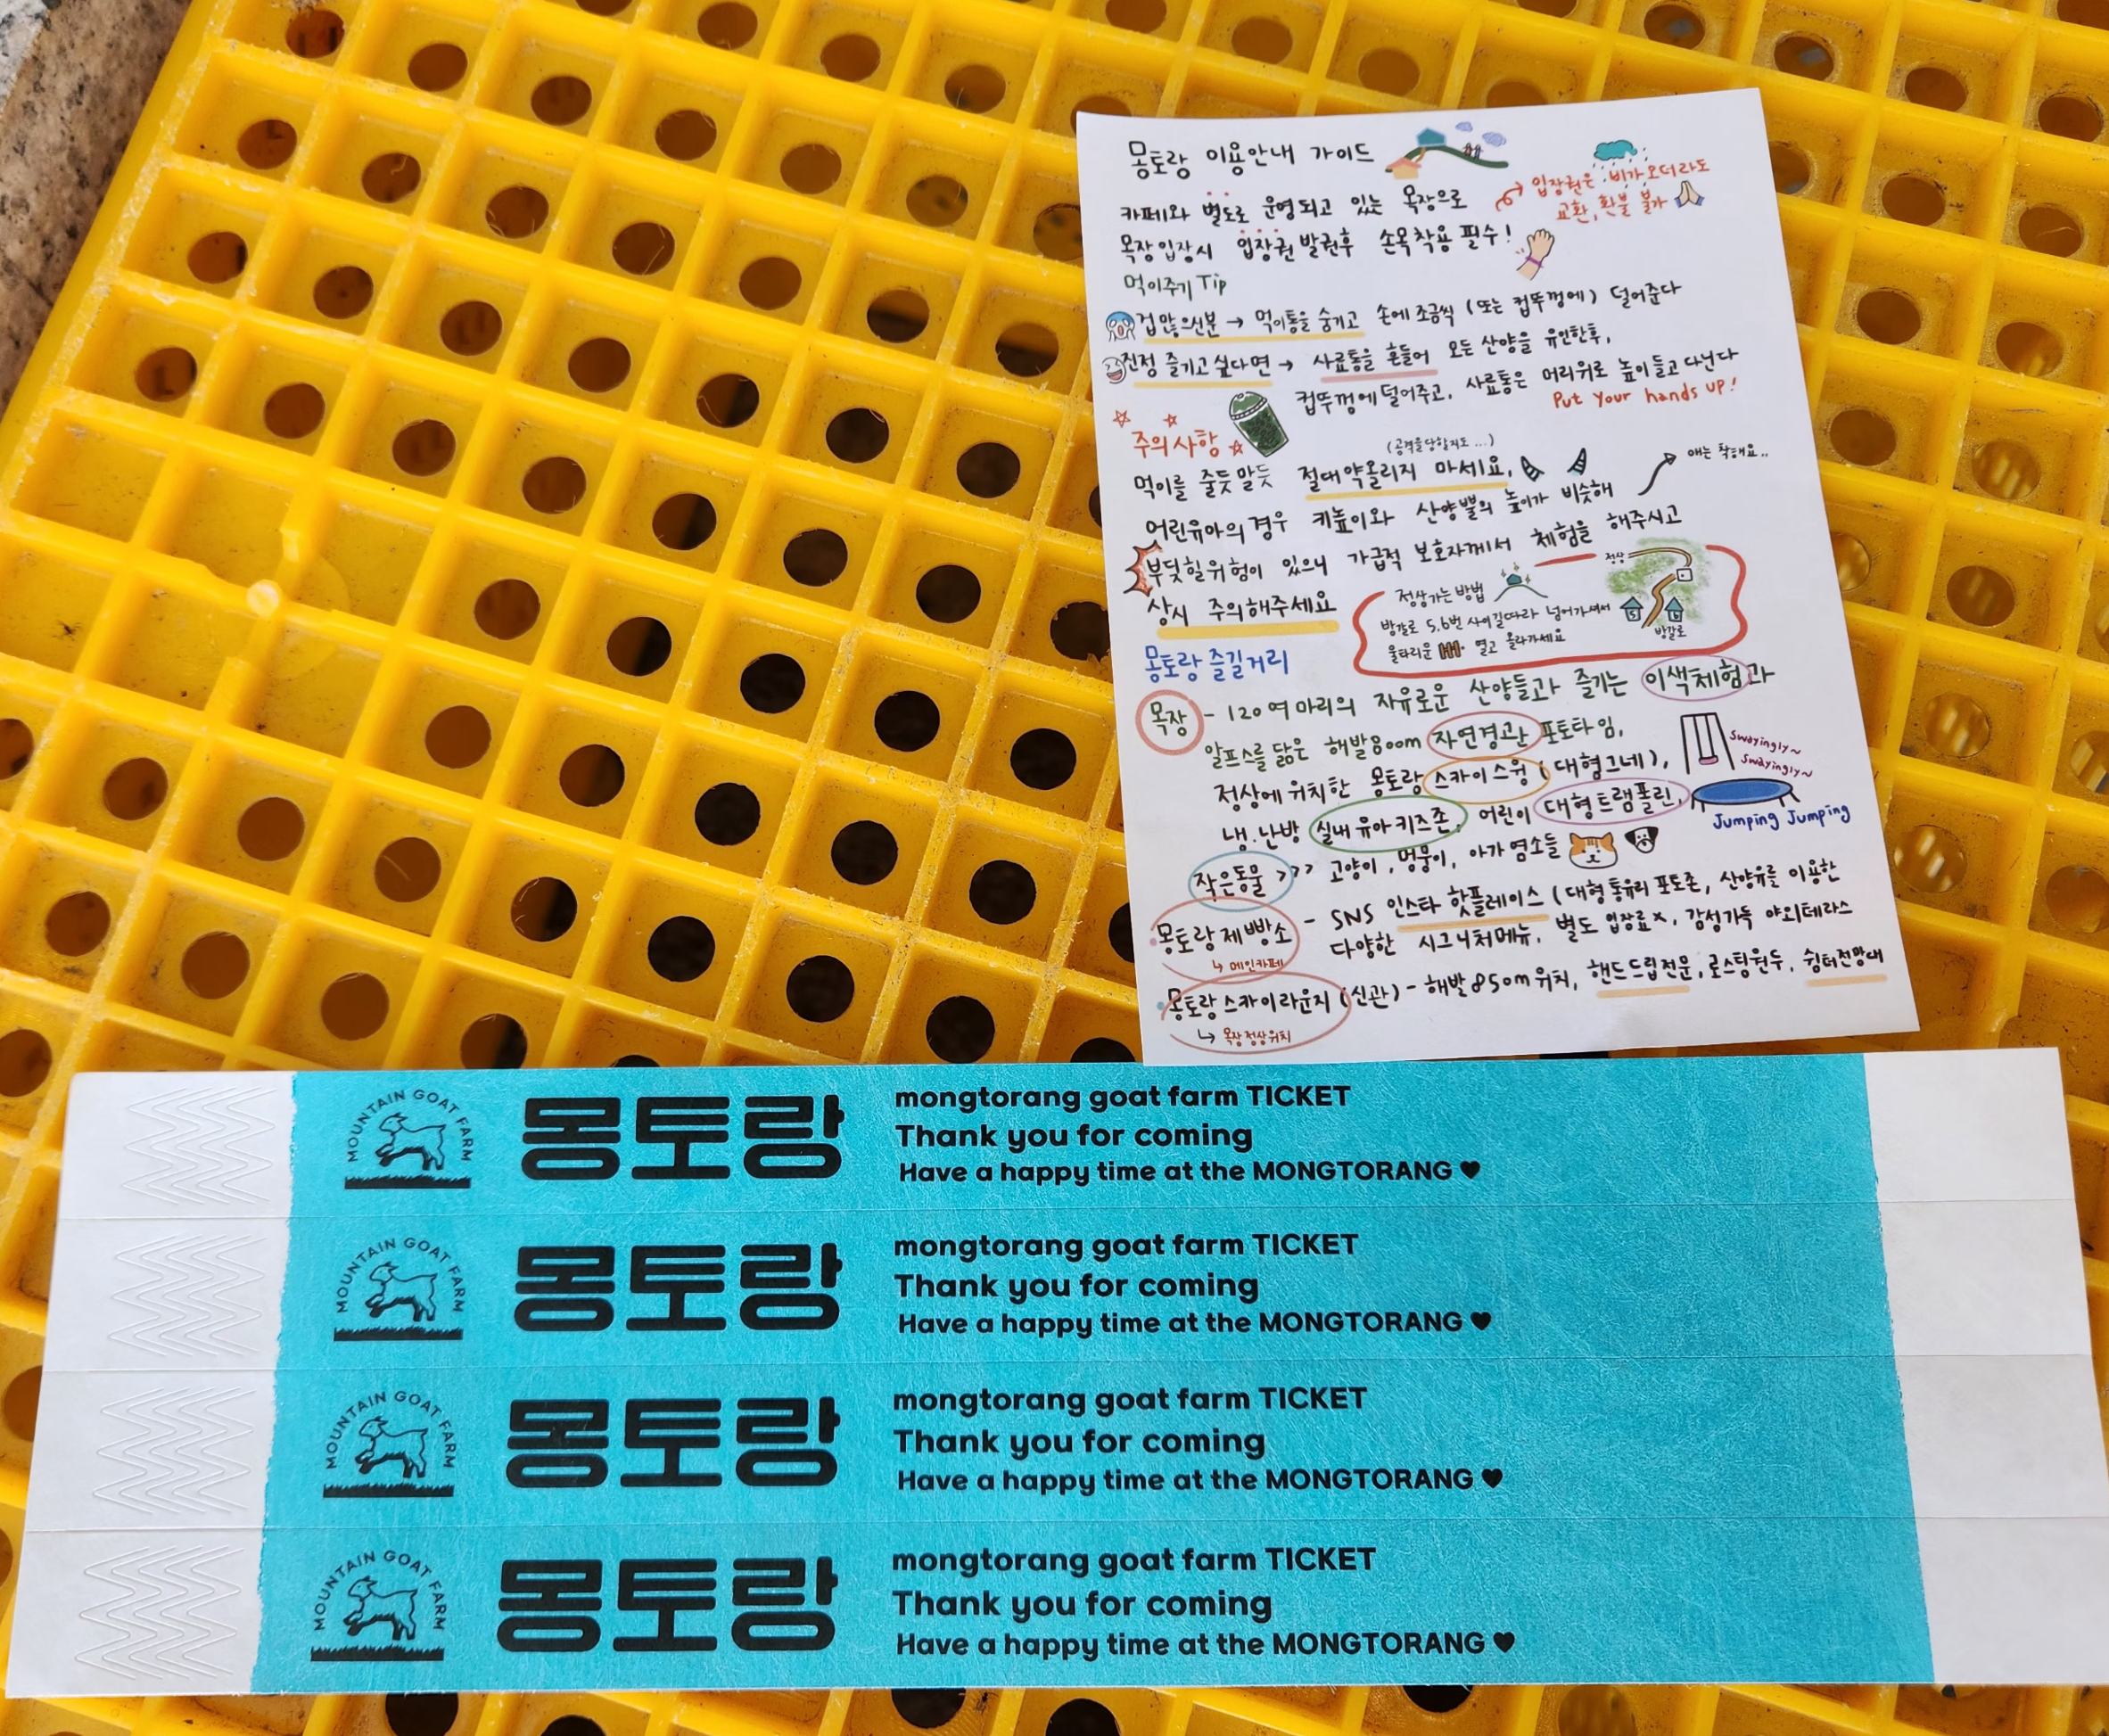 몽토랑 이용안내 가이드
카페와 별도로 운영되고 있는 목장으로
입장권은 비가오더라도
교환, 환불 불가
목장 입장시 입장권 발권후 손목착용 필수!
먹이주기 Tip
겁많으신분 → 먹이통을 숨기고 손에 조금씩 (또는 컵뚜껑에) 덜어준다
진정 즐기고 싶다면 → 사료통을 흔들어 모든 산양을 유인한후,
컵뚜껑에 덜어주고, 사료통은 머리위로 높이들고 다닌다
Put Your hands up!
주의사항
(공격을당할지도...)
먹이를 줄듯말듯 절대약올리지 마세요.
얘는 착해요..
어린유아의 경우 키높이와 산양뿔의 높이가 비슷해
부딪힐위험이 있으니 가급적 보호자께서 체험을 해주시고
상시 주의해주세요
정상가는방법
방갈로 5,6번 사이길따라 넘어가셔서
울타리문 열고 올라가세요
정상
5
6
방갈로
몽토랑 즐길거리
목장 - 120여마리의 자유로운 산양들과 즐기는 이색체험과
알프스를 닮은 해발800m 자연경관 포토타임,
정상에 위치한 몽토랑 스카이스윙 (대형그네),
Swayingly~
Swayingly~
냉.난방 실내 유아키즈존, 어린이 대형트램폴린,
Jumping Jumping
작은동물 >>> 고양이, 멍뭉이, 아가염소들
몽토랑제빵소 - SNS 인스타 핫플레이스 (대형통유리 포토존, 산양유를 이용한
다양한 시그니처메뉴, 별도 입장료x, 감성가득 야외테라스
↳ 메인카페
몽토랑스카이라운지 (신관) - 해발850m위치, 핸드드립전문, 로스팅원두, 쉼터전망대
↳ 목장정상위치
MOUNTAIN GOAT FARM
몽토랑
mongtorang goat farm TICKET
Thank you for coming
Have a happy time at the MONGTORANG ♥
MOUNTAIN GOAT FARM
몽토랑
mongtorang goat farm TICKET
Thank you for coming
Have a happy time at the MONGTORANG ♥
MOUNTAIN GOAT FARM
몽토랑
mongtorang goat farm TICKET
Thank you for coming
Have a happy time at the MONGTORANG ♥
MOUNTAIN GOAT FARM
몽토랑
mongtorang goat farm TICKET
Thank you for coming
Have a happy time at the MONGTORANG ♥